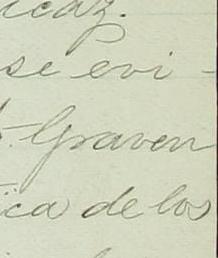 icaz.
se evi-
Graven
ica de los